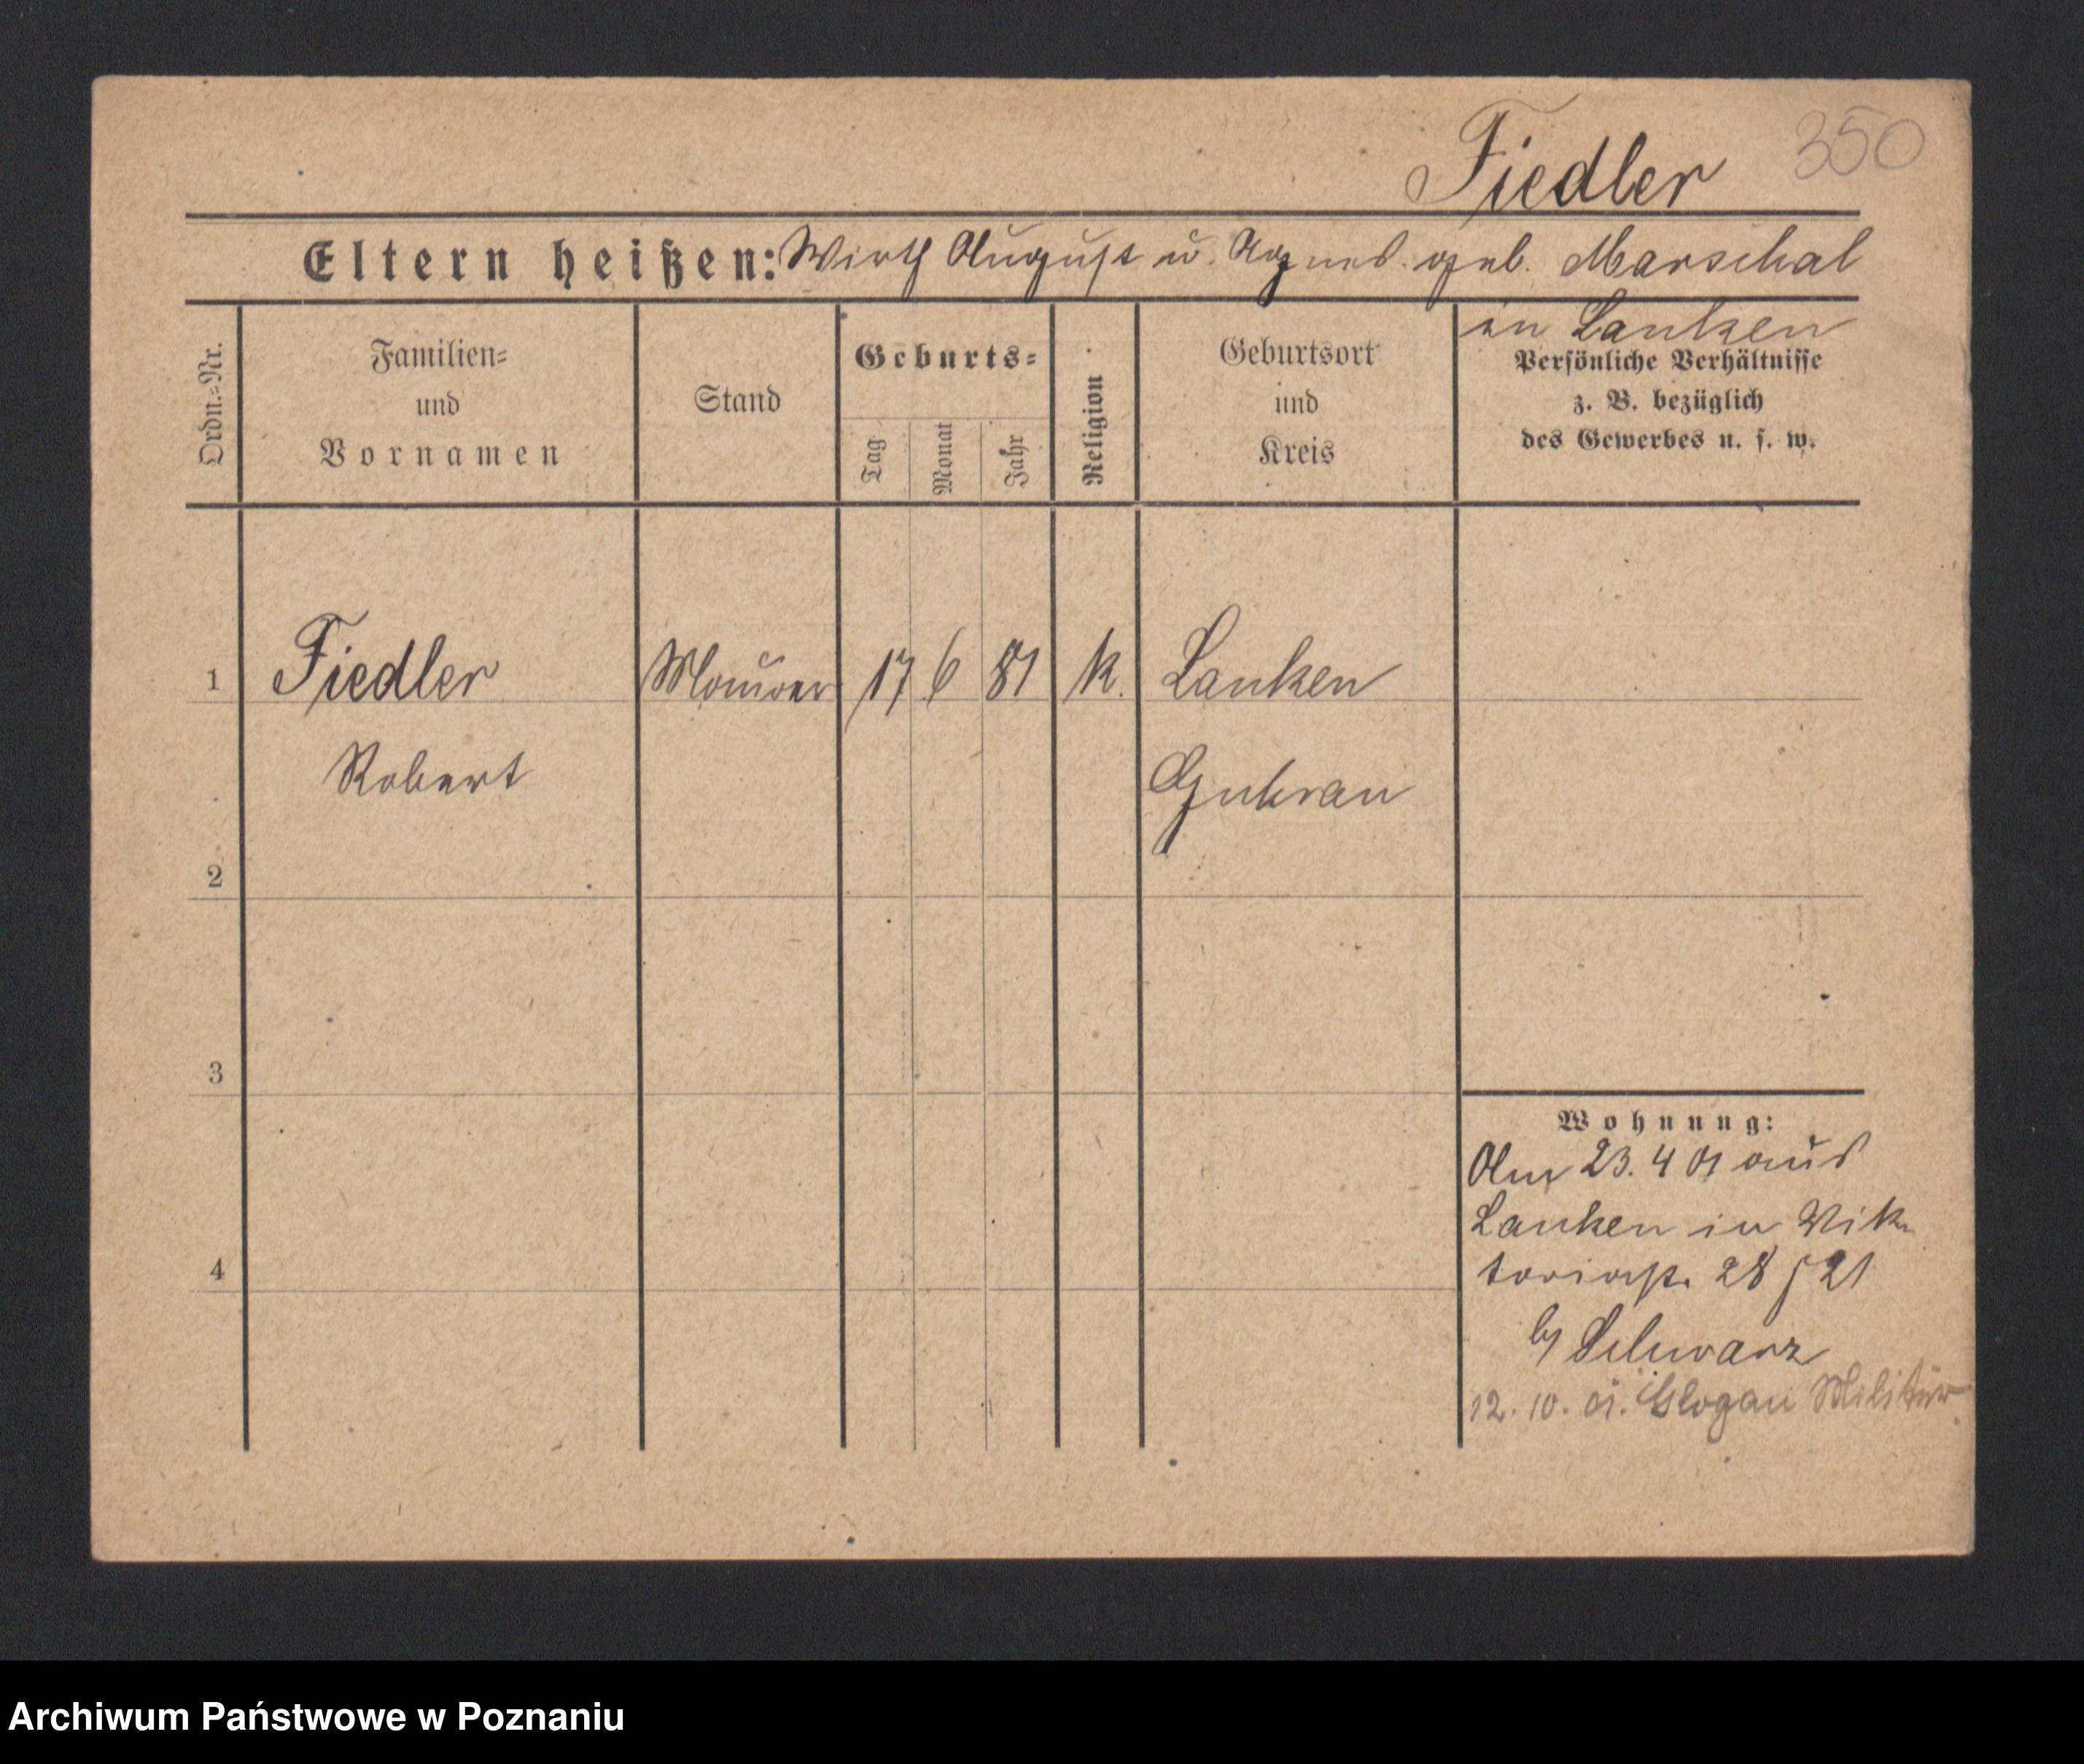 350
Fiedler
Eltern heißen: Wirth August u. Agnes geb. Marschal
in Lanken
Ordn.=Nr.
Familien=
und
Vornamen
Stand
Geburts=
Tag
Monat
Jahr
Religion
Geburtsort
und
Kreis
Persönliche Verhältnisse
z. B. bezüglich
des Gewerbes u. s. w.
1 Fiedler Maurer 17 6 81 k. Lanken
Robert Guhrau
2
3
4
Wohnung:
Am 23. 4 01 aus
Lanken in Vik
toriastr. 28 / 21
by Schwarz
12. 10. 01. Glogau Militär
Archiwum Państwowe w Poznaniu